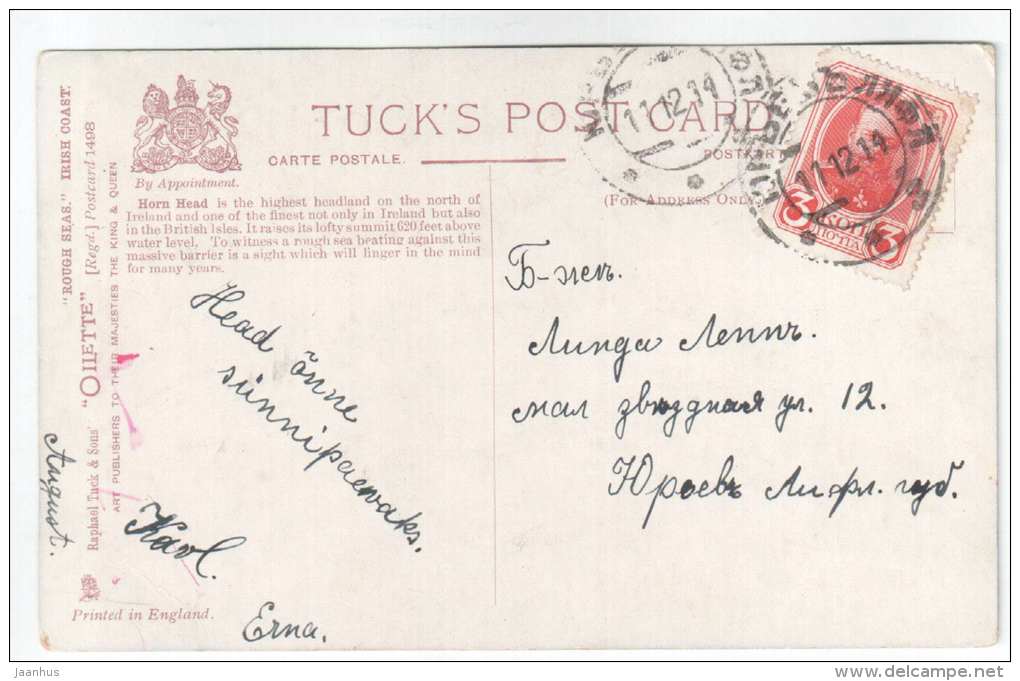 TUCK'S POST CARD
CARTE POSTALE.
(FOR ADDRESS ONLY)
By Appointment.
Horn Head is the highest headland on the north of
Ireland and one of the finest not only in Ireland but also
in the British Isles. It raises its lofty summit 620 feet above
water level. To witness a rough sea beating against this
massive barrier is a sight which will linger in the mind
for many years.
"ROUGH SEAS." IRISH COAST.
"OILETTE" [Regd.] Postcard 1498
ART PUBLISHERS TO THEIR MAJESTIES THE KING & QUEEN
Raphael Tuck & Sons'
Printed in England.
Head õnne
sünnipaewaks.
August.
Karl.
Erna.
11.12.14
11.12.14
3 КОП 3
Б-жен.
Линда Леппъ.
мал звѣздная ул. 12.
Юрьевъ Лифл. губ.
jaanhus
www.delcampe.net